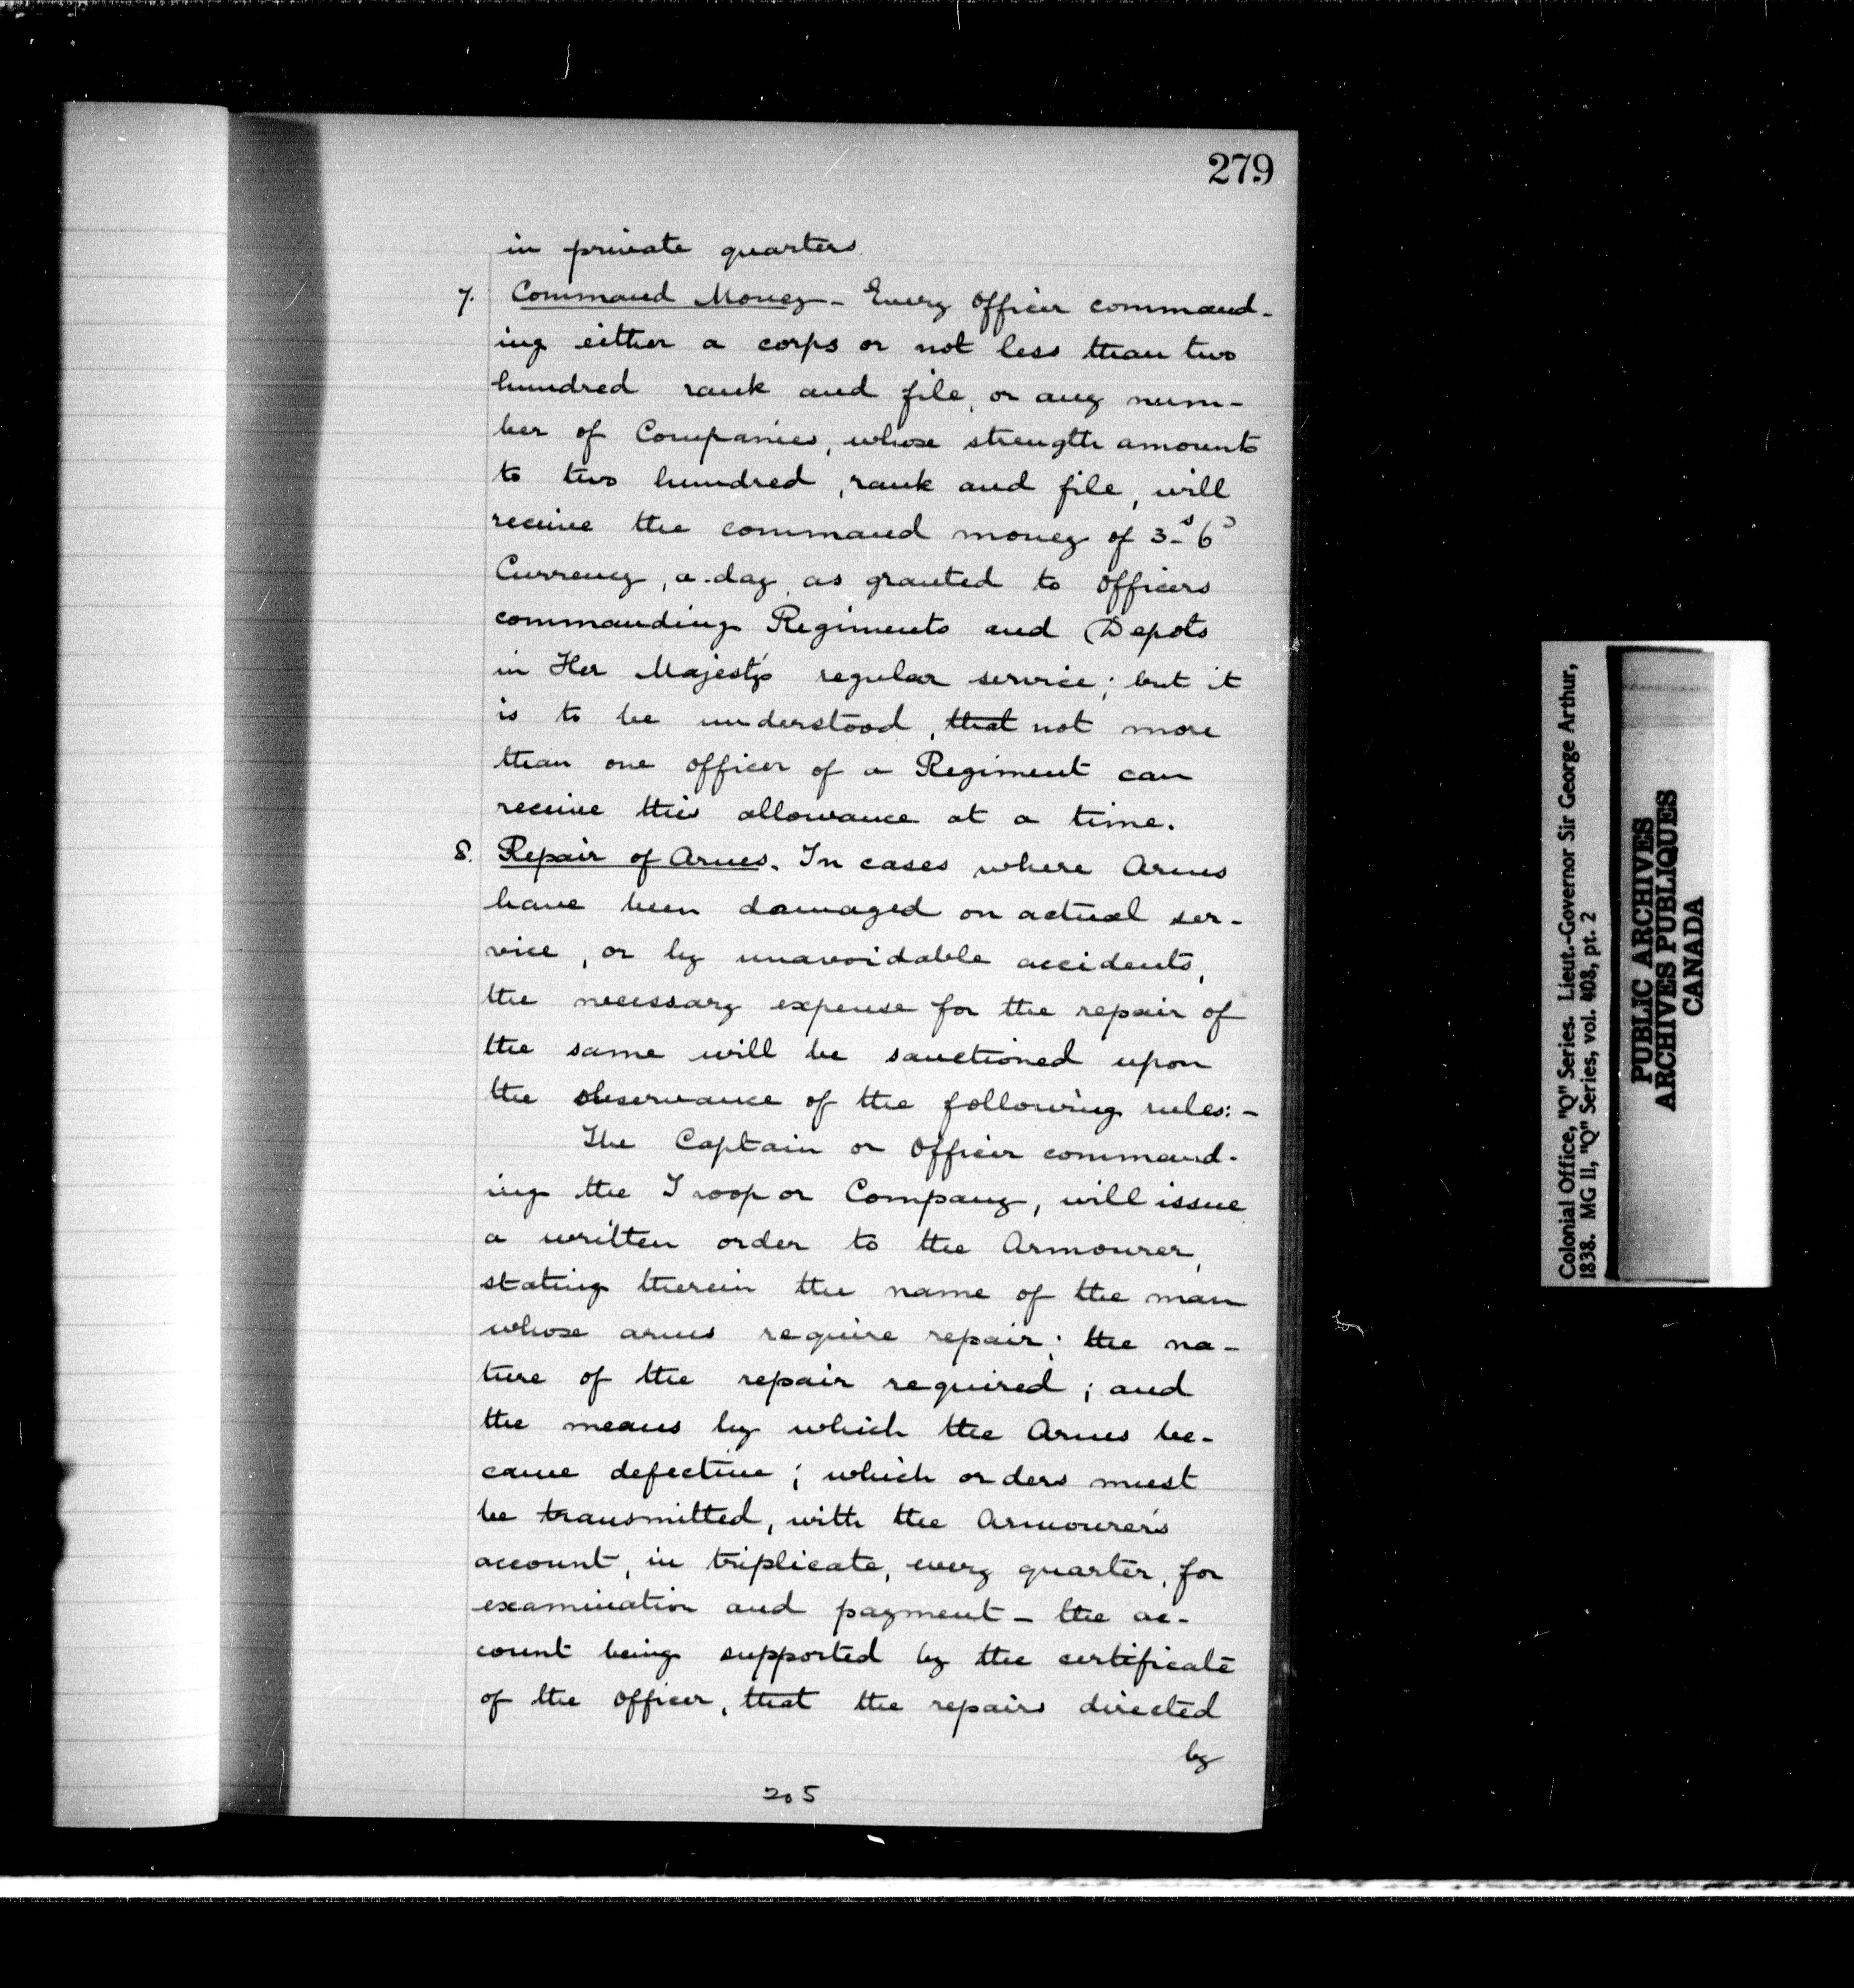 279
in private quarters
7. Command Money - Every Officer command-
ing either a corps or not less than two
hundred rank and file, or any num-
ber of Companies, whose strength amounts
to two hundred, rank and file, will
receive the command money of 3s-6D
Currency, a-day, as granted to Officers
commanding Regiments and Depots
in Her Majesty's regular service; but it
is to be understood, that not more
than one officer of a Regiment can
receive this allowance at a time.
8. Repair of Arms. In cases where Arms
have been damaged on actual ser-
vice, or by unavoidable accidents,
the necessary expense for the repair of
the same will be sanctioned upon
the observance of the following rules:-
The Captain or Officer command-
ing the Troop or Company, will issue
a written order to the Armourer,
stating therein the name of the man
whose arms require repair; the na-
ture of the repair required; and
the means by which the Arms be-
came defective; which orders must
be transmitted, with the Armourer's
account, in triplicate, every quarter, for
examination and payment - the ac-
count being supported by the certificate
of the Officer, that the repairs directed
by
205
Colonial Office, "Q" Series. Lieut.-Governor Sir George Arthur,
1838. MG 11, "Q" Series, vol. 408, pt. 2
PUBLIC ARCHIVES
ARCHIVES PUBLIQUES
CANADA